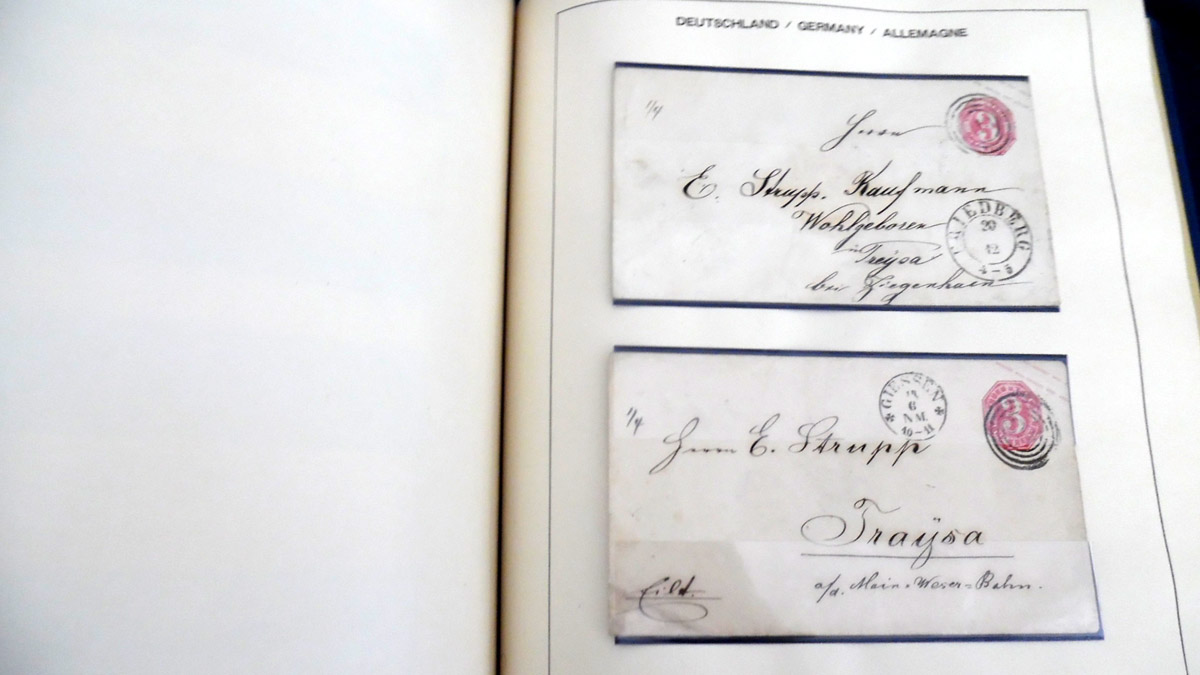 DEUTSCHLAND / GERMANY / ALLEMAGNE
1/4
3
Herrn
E. Strupp. Kaufmann
Wohlgeboren
in Treÿsa
bei Ziegenhain
FRIEDBERG
20
12
4-5
1/4
GIESSEN
6
NM.
10-11
3
Herrn E. Strupp
Traÿsa
a/d. Main-Weser=Bahn.
Eilt.